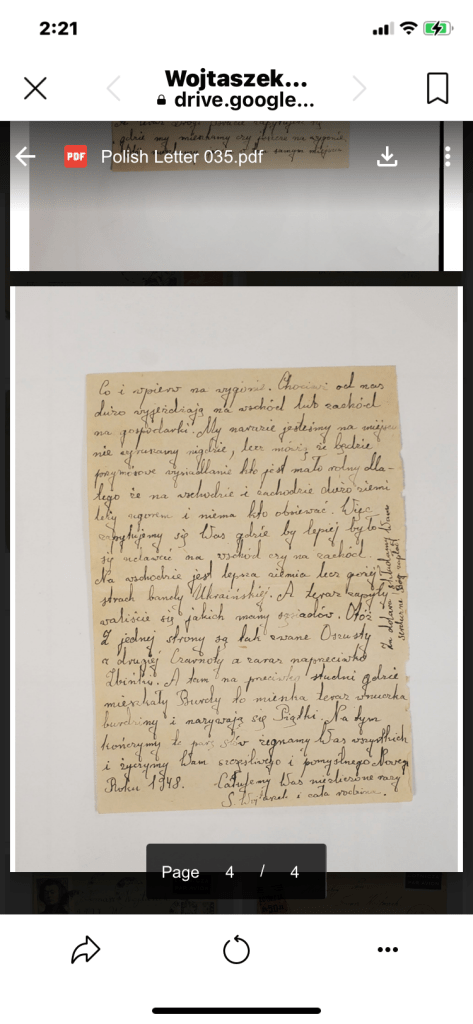 2:21
Wojtaszek...
drive.google...
PDF Polish Letter 035.pdf
gdzie my mieszkamy czy jeszcze na wygonie
samym miejscu
Co i wpierw na wygonie. Chociaż od nas
dużo wyjeżdzają na wschód lub zachód
na gospodarki. My narazie jesteśmy na miejscu
nie wyruszamy nigdzie, lecz mówią że będzie
przymósowe wysiadlanie kto jest mało rolny dla-
tego że na wschodzie i zachodzie dużo ziemi
leży ugorem i niema kto obsiewać. Więc
zapytujemy się Was gdzie by lepiej było
się udawić na wschód czy na zachód.
Na wschodzie jest lepsza ziemia lecz gorzej
strach bandy Ukraińskiej. A teraz zapyty
waliście się jakich mamy sąsiadów. Otóż
z jednej strony są tak zwane Oszusty
z drugiej Czarnoty a zaraz naprzeciwko
Zbińki. A tam na przeciwko studni gdzie
mieszkały Burdy to mieszka teraz wnuczka
burdziny i nazywają się Piątki. Na tym
kończymy te parę słów żegnamy Was wszystkich
i życzymy Wam szczęśliwego i pomyślnego Nowego
Roku 1948. Całujemy Was niezliczone razy
S. Wojtaszek i cała rodzina.
Za dolara składamy Wam
serdeczne Bóg zapłać
Page 4 / 4